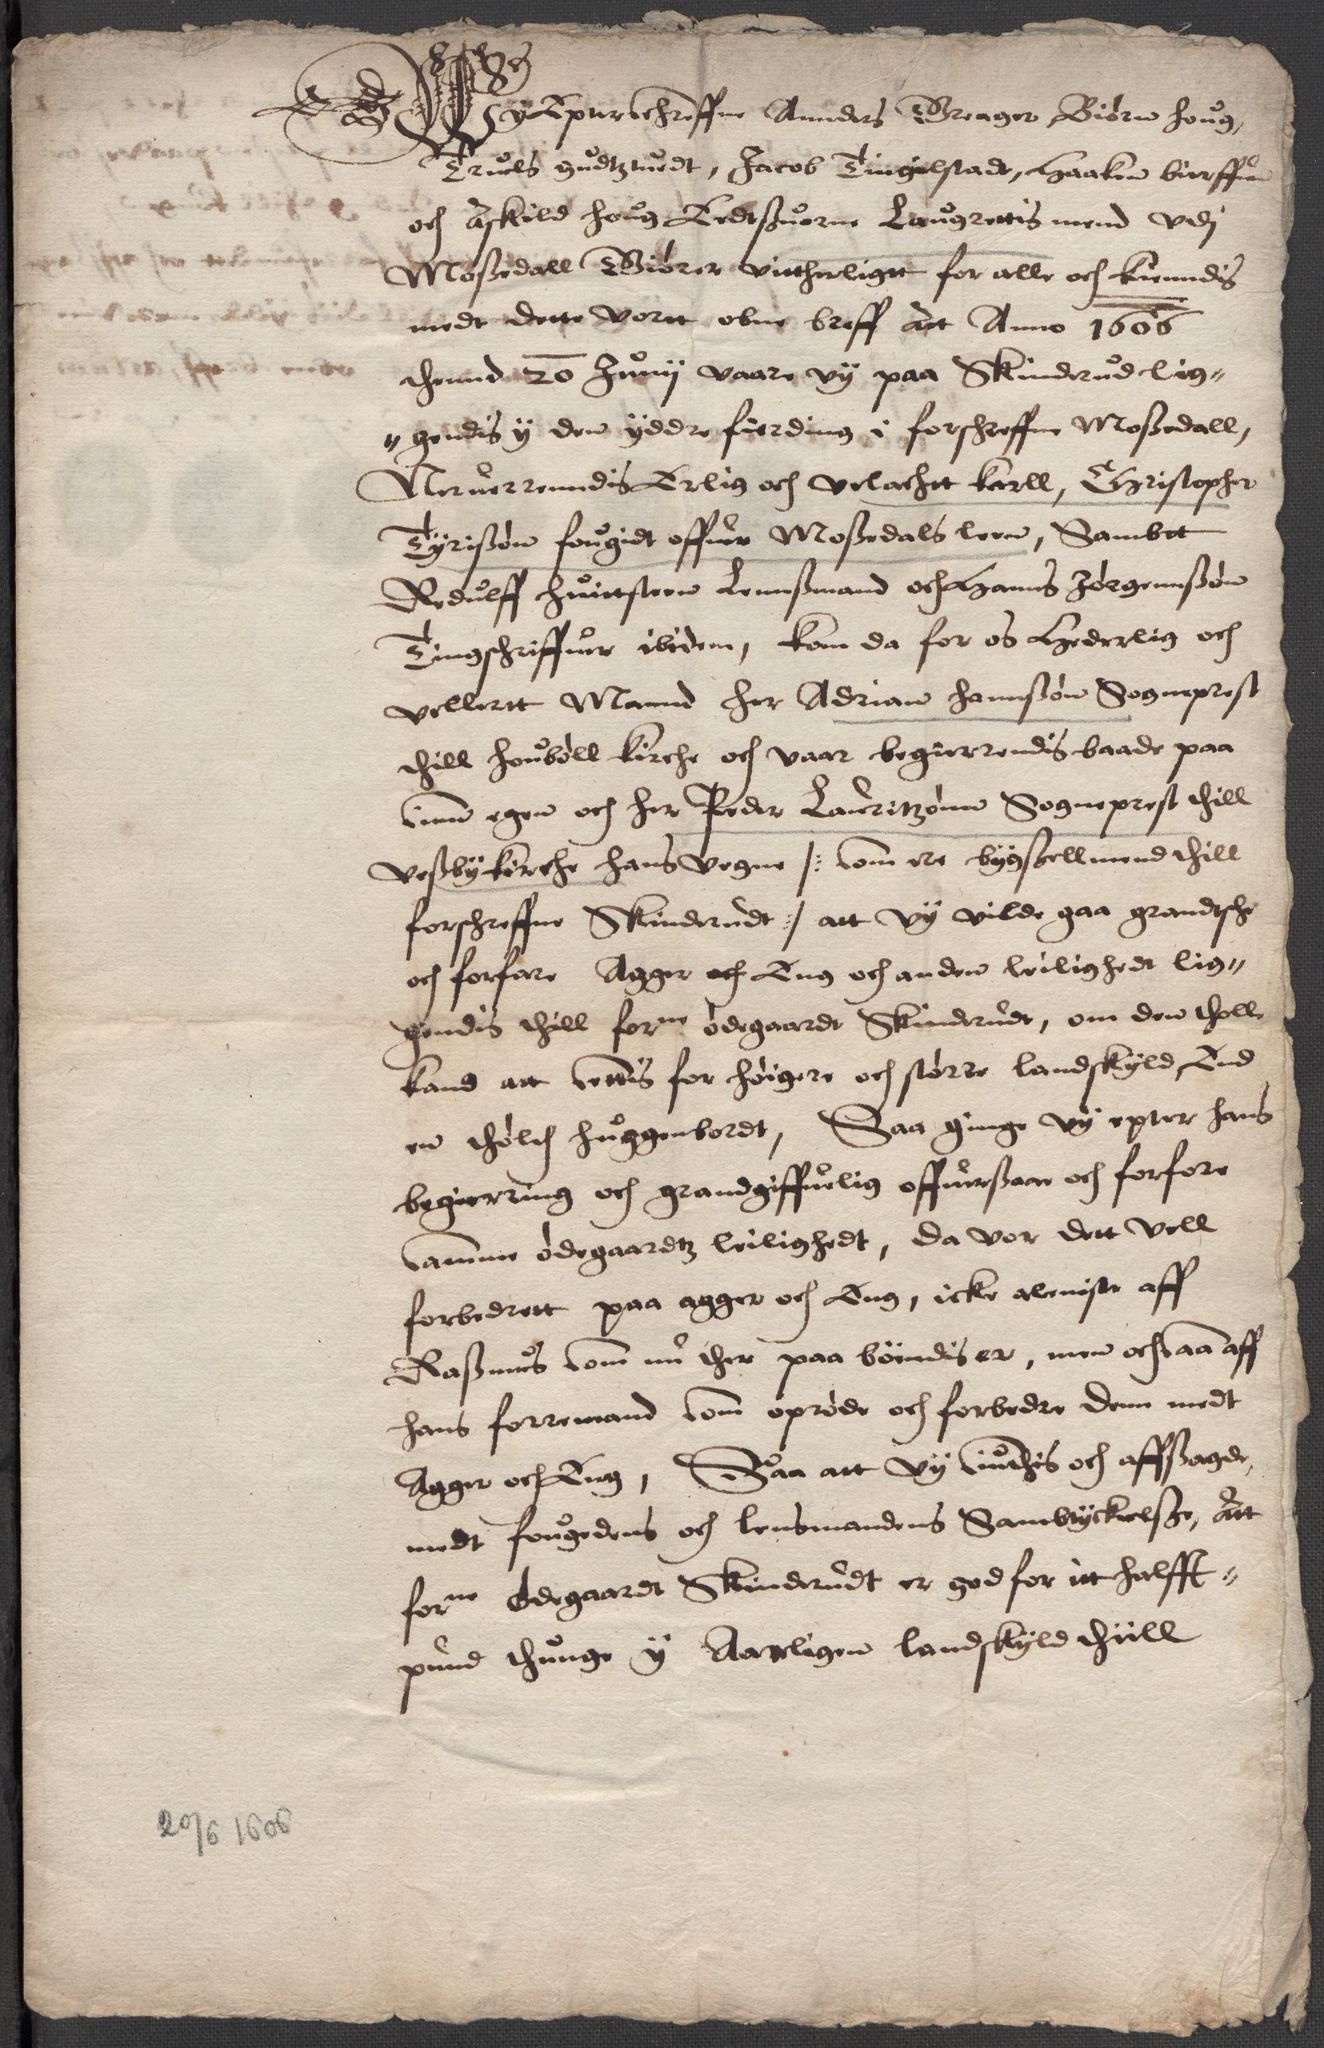 Wy Epterschreffne Annders Breager Biörn houg,
Truels gudtztuedt, Jacob Tingelstadt, Haaken bierffue
och Askild houg Eedtsuorne Laugrettis mend vdj
Moßedall Giörer vitherligtt for alle och kiendis
medt dette vortt obne breff Att Anno 1606
thennd 20 Junij vaare vy paa Skinderud lig„
„gendis y den yddre fierding i forschreffne Moßedall,
Neruerrenndis Erlig och velachtt karll, Christopher
Tyrißön fougidt offuer Moßedals leen, Sambtt
Redulff huittsteen Lennßmand och Hanns Jörgennßön
Tingschriffuer ibidem, kom da for os Hederlig och
vellertt Mannd her Adrian hannßön Sogneprest
thill houböll kirche och vaar begierrendis baade paa
sinn egen och her Peder Lauritzönn Sogneprest thill
veßby kirche hans vegne /: som ere bygßellmend thill
forschreffne Skinderudt :/ att vy vilde gaa grandtshe
och forfare Agger och Eng och anden leilighedt lig„
gendis thill forne ödegaardt Skinderudt, om den tholle
kand att settis for höigere och större landskyld End
en thölch huggenbordt, Saa ginge vy epter hans
begierring och grandgiffuelig offuerßaae och forfore
samme ödegaardtz leilighedt, da vor dett vell
forbedrett paa agger och Eng, icke aleniste aff
Raßmus som nu ther paa böendis er, men och saa aff
hans forremand som oprøde och forbedre denn medt
Agger och Eng, Saa att vy siuthis och affßagde,
medt fougedens och lensmandens Samtyckelße, Att
forne Ödegaardt Skinderudt er god for itt halfft„
pund thunge y Aarligen landskyld thiill
20/6 1606